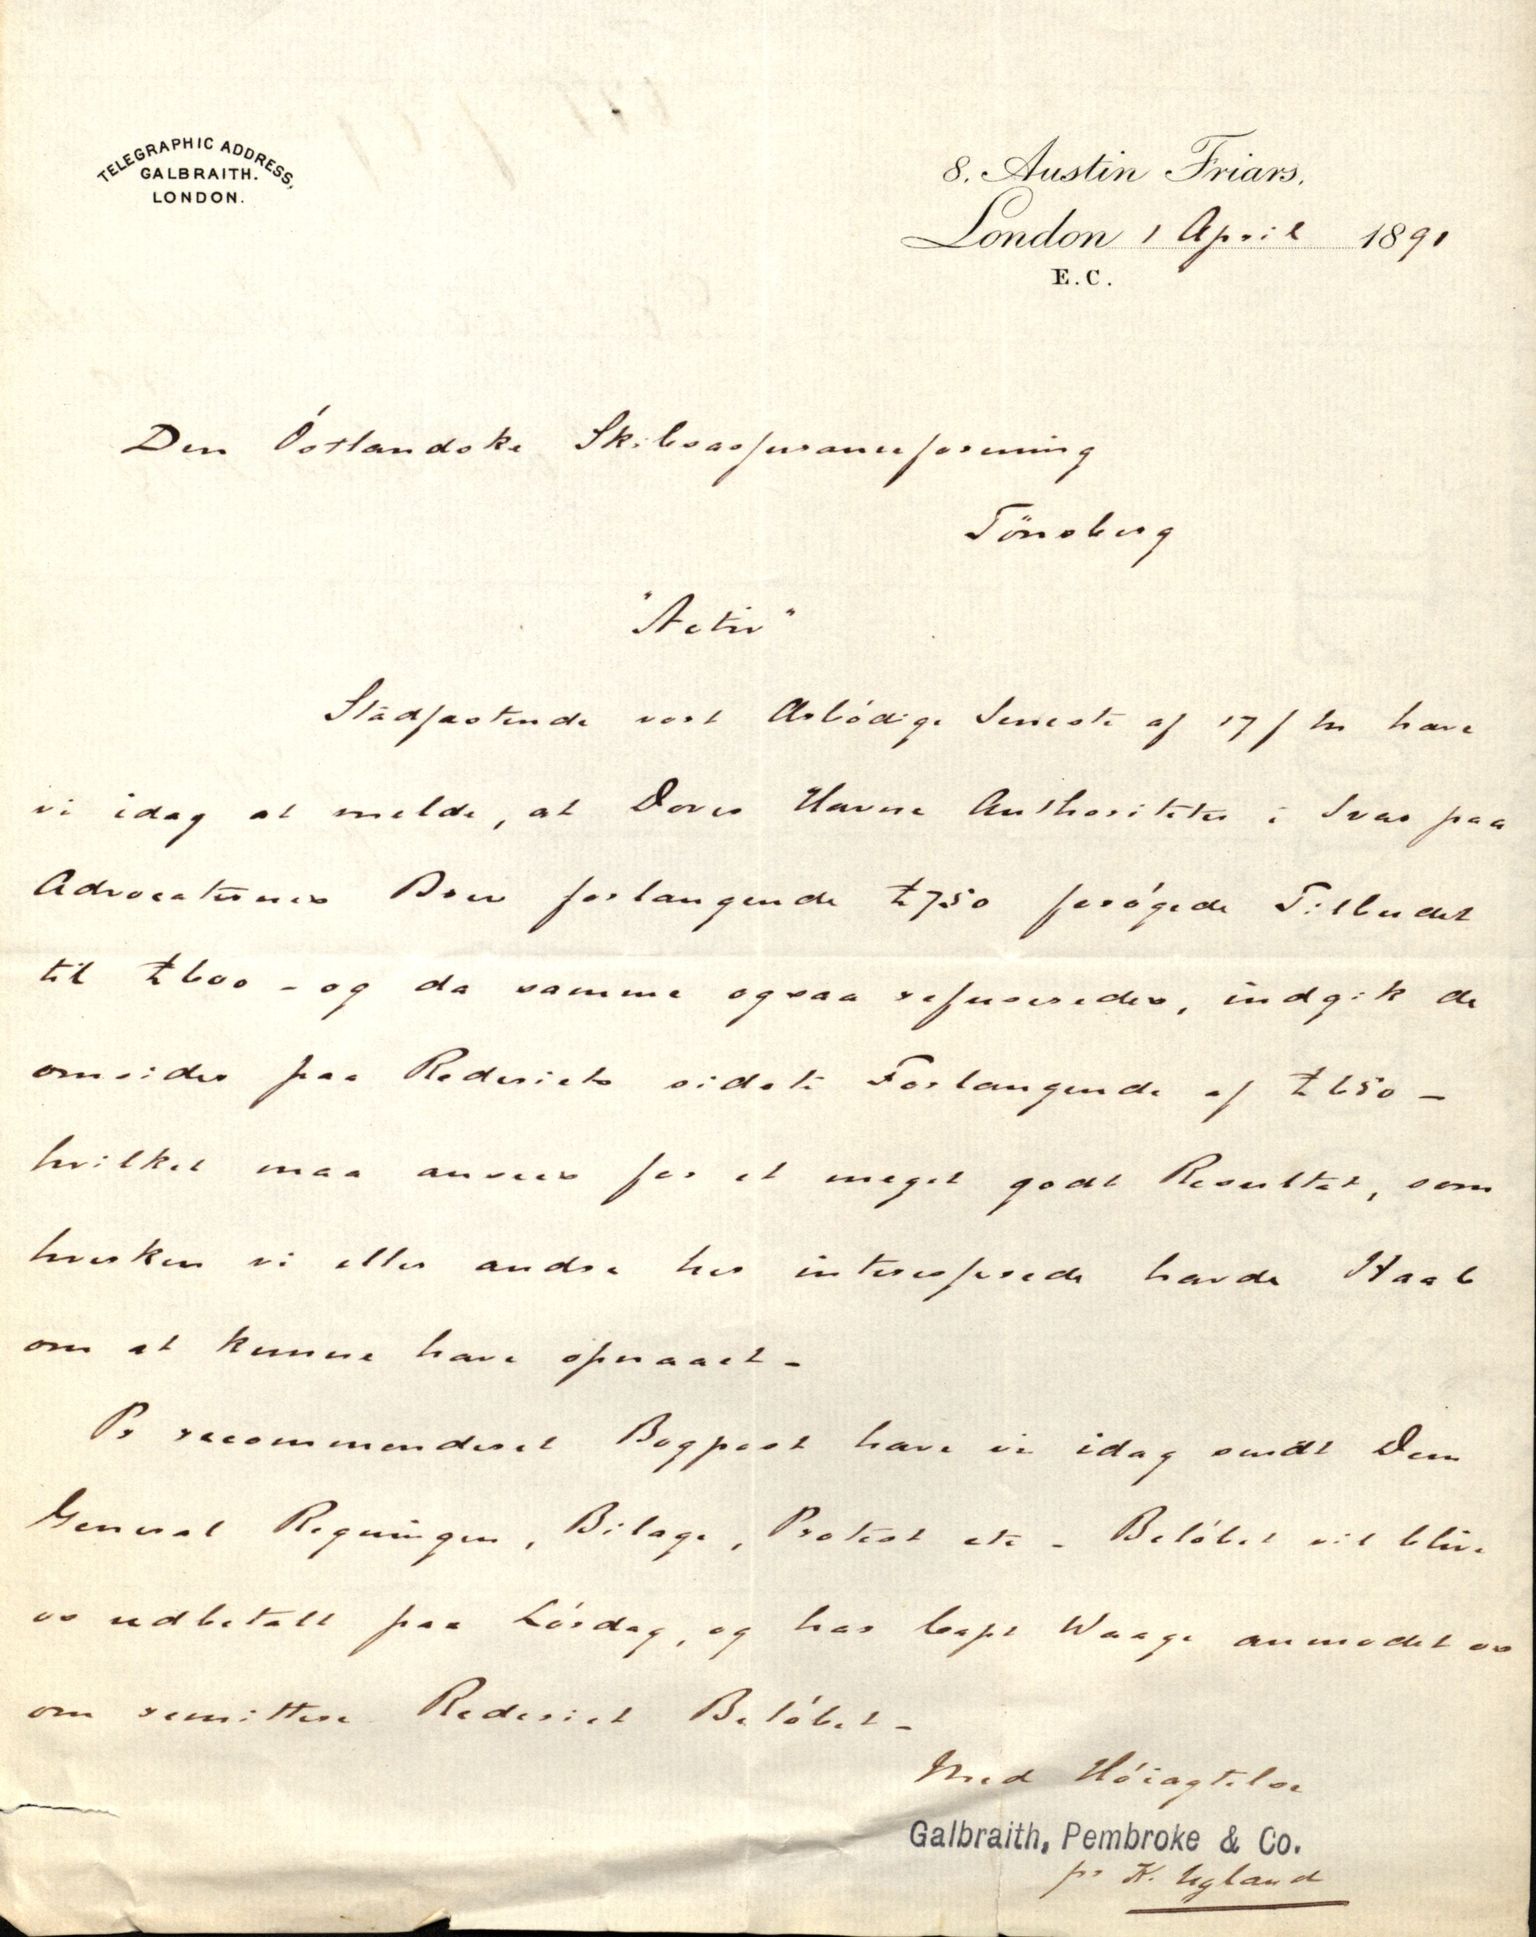 TELEGRAPHIC ADDRESS,
GALBRAITH.
LONDON.
8. Austin Friars,
London 1 April 1891
E.C.
Den Östlandske Skibsassuranceforening
Tönsberg
"Activ"
Stadfæstende vort Ærbödige Seneste af 17 f m have
vi idag at melde, at Dover Havne Authoriteter i Svar paa
Advocaternes Brev forlangende £750 forögede Tilbudet
til £600 - og da samme ogsaa refuseredes, indgik de
omsider paa Rederiets sidste Forlangende af £650 -
hvilket maa ansees for et meget godt Resultat, som
hverken vi eller andre her interesserede havde Haab
om at kunne have opnaaet -
Pr recommenderet Bogpost have vi idag sendt Dem
General Regningen, Bilage, Protest etc - Belöbet vil blive
os udbetalt paa Lördag, og har Capt Waage anmodet os
om remittere Rederiet Belöbet -
Med Höiagtelse
Galbraith, Pembroke & Co.
pr K. Ugland